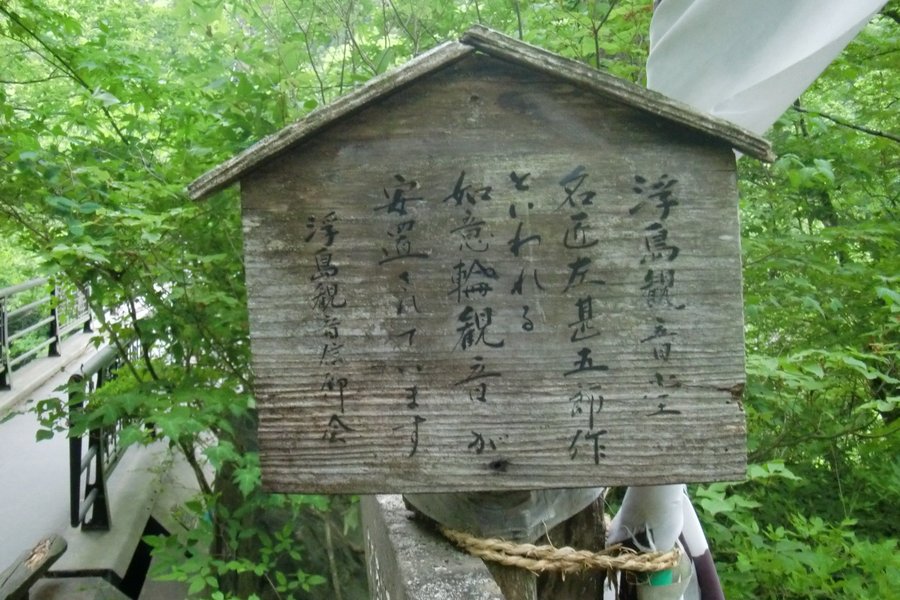 浮島観音堂
名匠左甚五郎作
といわれる
如意輪観音が
安置されています
浮島観音信仰会